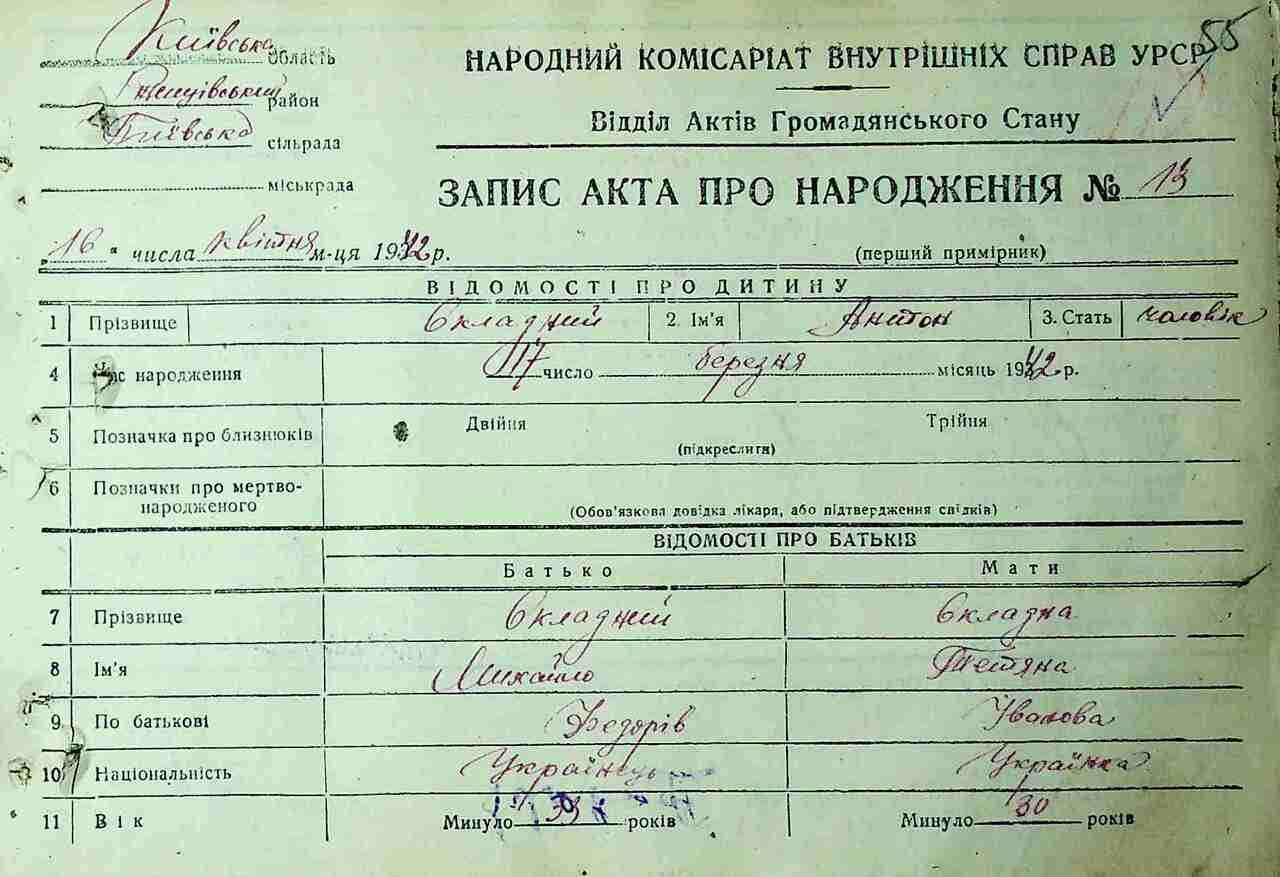 55
Київська область
НАРОДНИЙ КОМІСАРІАТ ВНУТРІШНІХ СПРАВ УРСР
район
Відділ Актів Громадянського Стану
сільрада
міськрада
ЗАПИС АКТА ПРО НАРОДЖЕННЯ № 13
„16" числа квітня м-ця 1942 р.
(перший примірник)
ВІДОМОСТІ ПРО ДИТИНУ
1 Прізвище Складний 2. Ім'я Антон 3. Стать чоловік
4 Час народження 17 число березня місяць 1942 р.
5 Позначка про близнюків Двійня Трійня
(підкреслити)
6 Позначки про мертво-
народженого (Обов'язкова довідка лікаря, або підтвердження свідків)
ВІДОМОСТІ ПРО БАТЬКІВ
Батько Мати
7 Прізвище Складний Складна
8 Ім'я Михайло Тетяна
9 По батькові Федорів Іванова
10 Національність Українець Українка
11 Вік Минуло 39 років Минуло 30 років